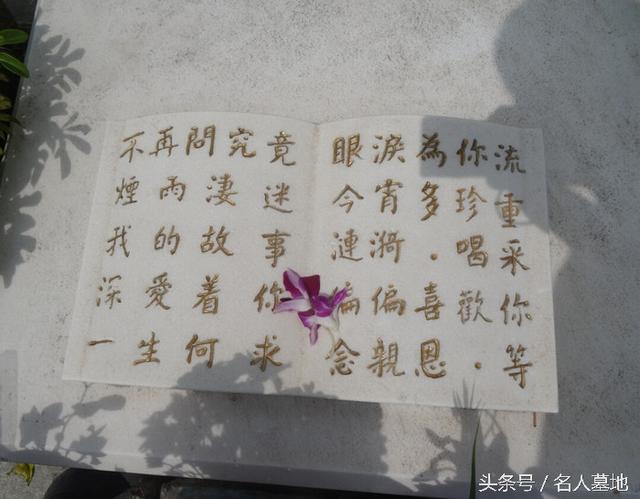 不再問究竟
煙雨淒迷
我的故事
深愛着你
一生何求
眼淚為你流
今宵多珍重
漣漪．喝采
偏偏喜歡你
念親恩．等
头条号／名人墓地